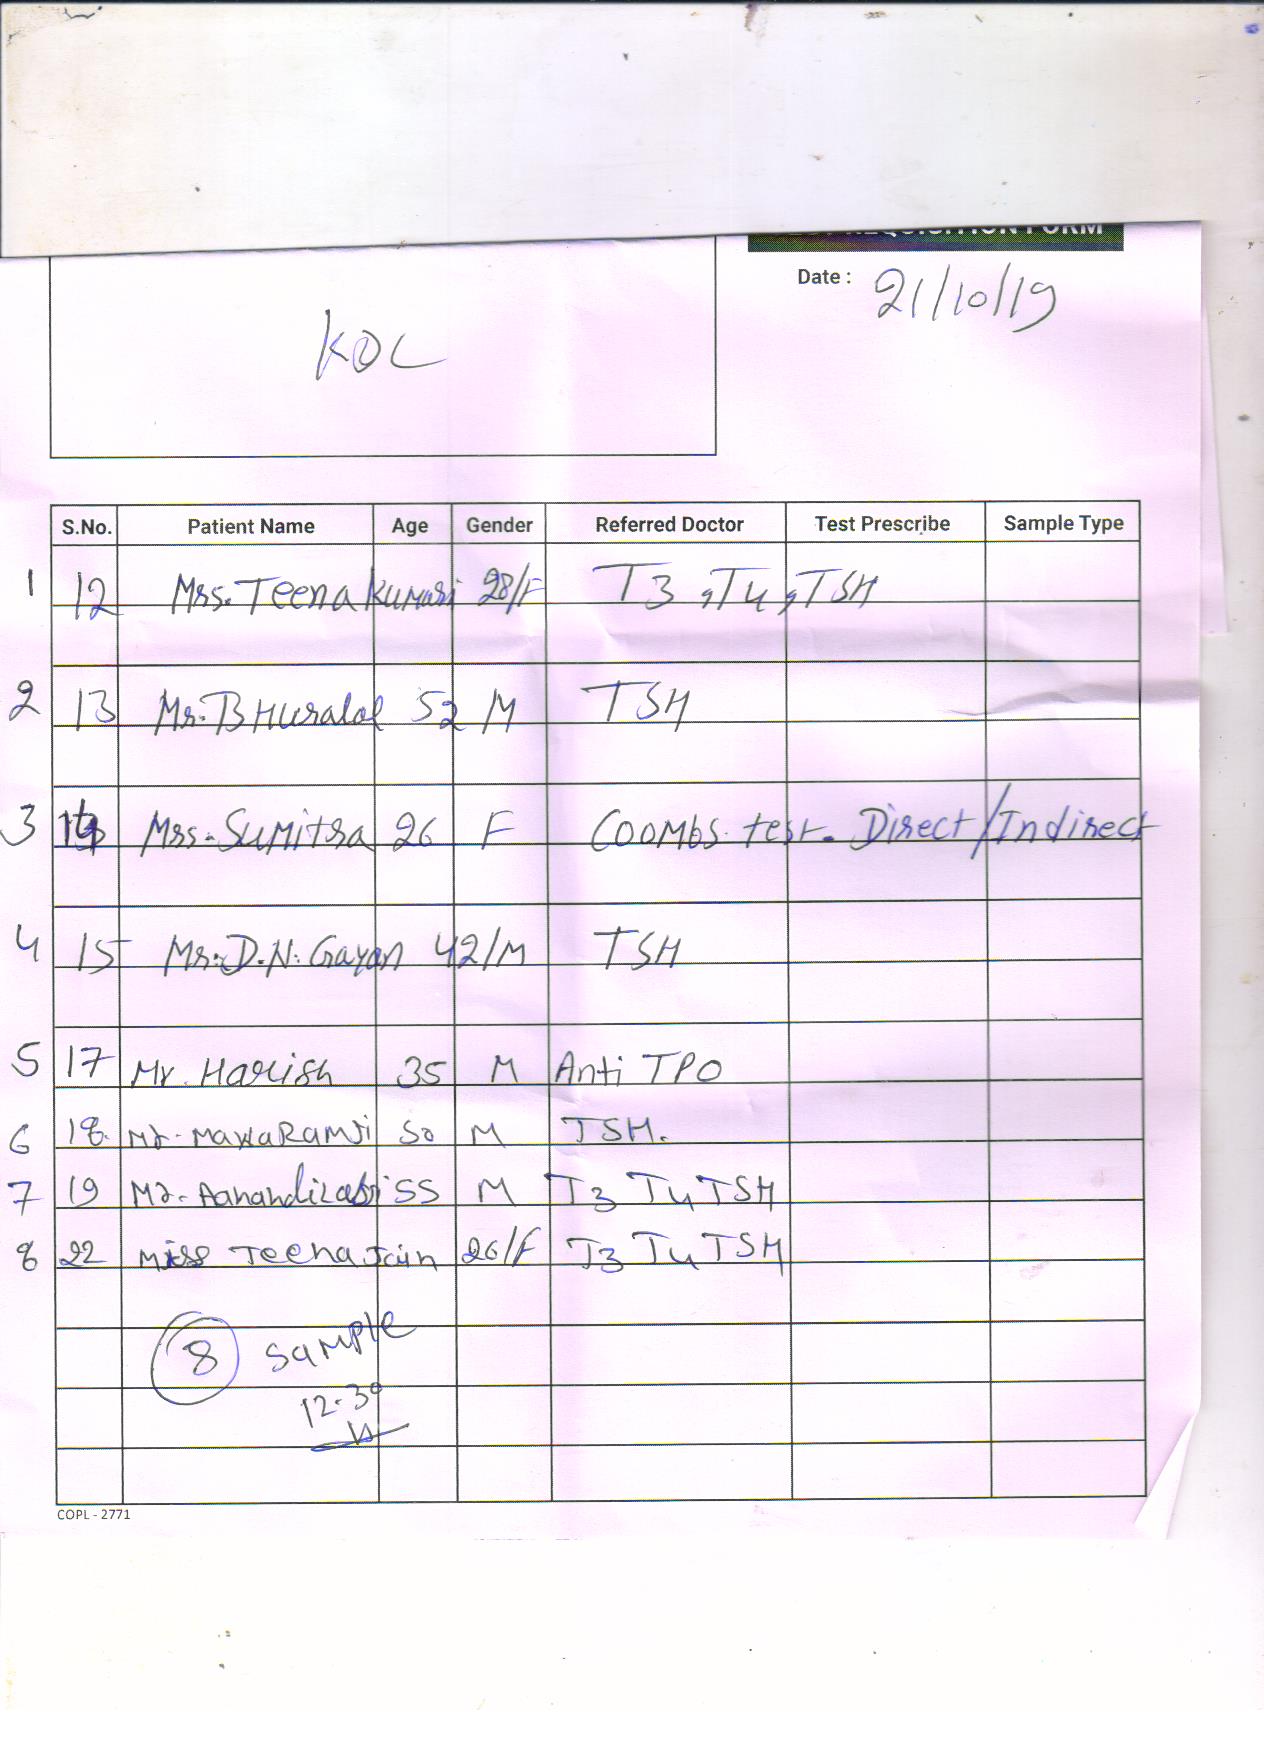 Date : 21/10/19
KDL
S.No. Patient Name Age Gender Referred Doctor Test Prescribe Sample Type
1 12 Mrs. Teena Kumari 28/F T3, T4, TSH
2 13 Mr. BHuralal 52 M TSH
3 14 Mrs. Sumitra 26 F COOMBS test. Direct/Indirect
4 15 Mr. D.N. Gayan 42/M TSH
5 17 Mr. Harish 35 M Anti TPO
6 18. Mr. MawaRamJi 50 M TSH.
7 19 Mr. 55 M T3 T4 TSH
8 22 Miss Teena Jain 26/F T3 T4 TSH
8 Sample
12-30
COPL - 2771